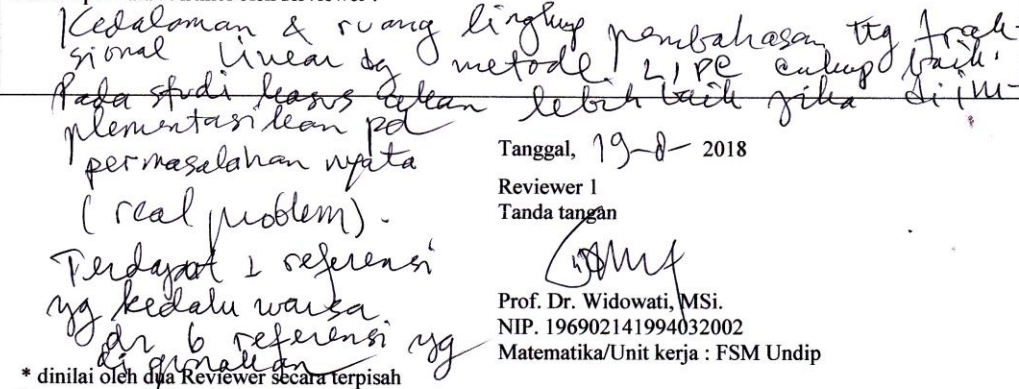 Kedalaman & ruang lingkup pembahasan ttg frak-
sional linear dg metode LIPC cukup baik.
Pada studi kasus akan lebih baik jika diim-
plementasikan pd
permasalahan nyata
(real problem).
Terdapat 1 referensi
yg kedalu warsa
dr 6 referensi yg
digunakan
Tanggal, 19-8- 2018
Reviewer 1
Tanda tangan
Prof. Dr. Widowati, MSi.
NIP. 196902141994032002
Matematika/Unit kerja : FSM Undip
* dinilai oleh dua Reviewer secara terpisah